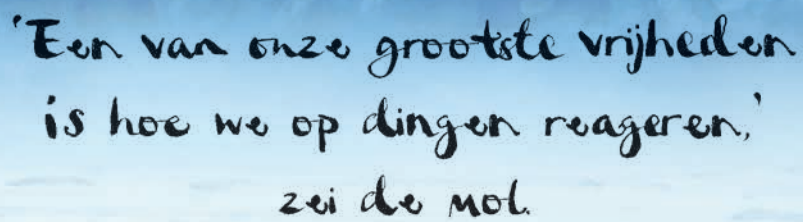 'Een van onze grootste vrijheden
is hoe we op dingen reageren,'
zei de mol.